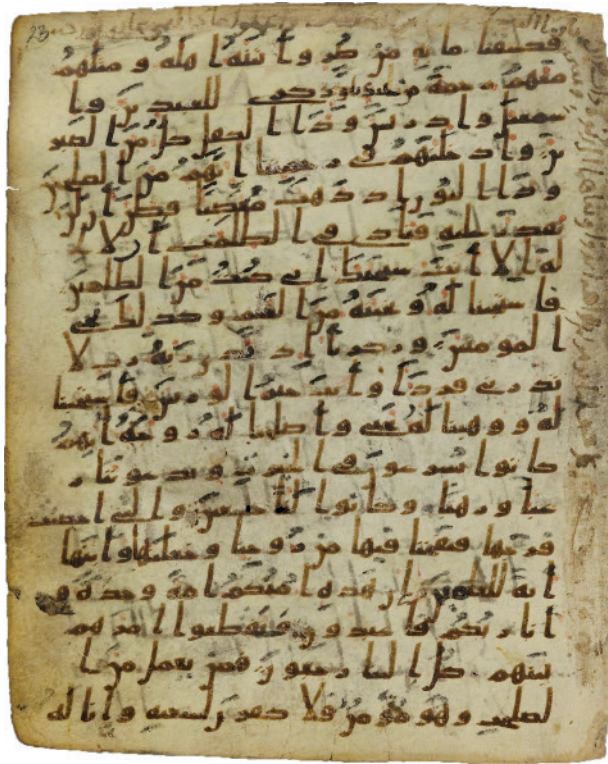 فكشفنا ما به من ضر وأتينه أهله و مثلهم
معهم رحمة من عندنا وذكرى للعبدين وا
سمعيل وادريس وذا الكفل كل من الصبر
ين وأدخلنهم في رحمتنا انهم من الصلحين
وذا النون اذ ذهب مغضبا فظن أن لن
نقدر عليه فنادى في الظلمت أن لا ا
له الا أنت سبحنك اني كنت من الظلمين
فاستجبنا له ونجينه من الغم وكذلك نجي
المومنين وزكريا اذ نادى ربه رب لا
تذرني فردا وأنت خير الورثين فاستجبنا
له ووهبنا له يحيى وأصلحنا له زوجه انهم
كانوا يسرعون في الخيرت ويدعوننا ر
غبا ورهبا وكانوا لنا خشعين والتي احصنت
فرجها فنفخنا فيها من روحنا وجعلنها وابنها
أية للعلمين ان هذه أمتكم أمة وحدة و
أنا ربكم فاعبدون وتقطعوا امرهم
بينهم كل الينا رجعون فمن يعمل من ا
لصلحت وهو مومن فلا كفرن لسعيه وانا له